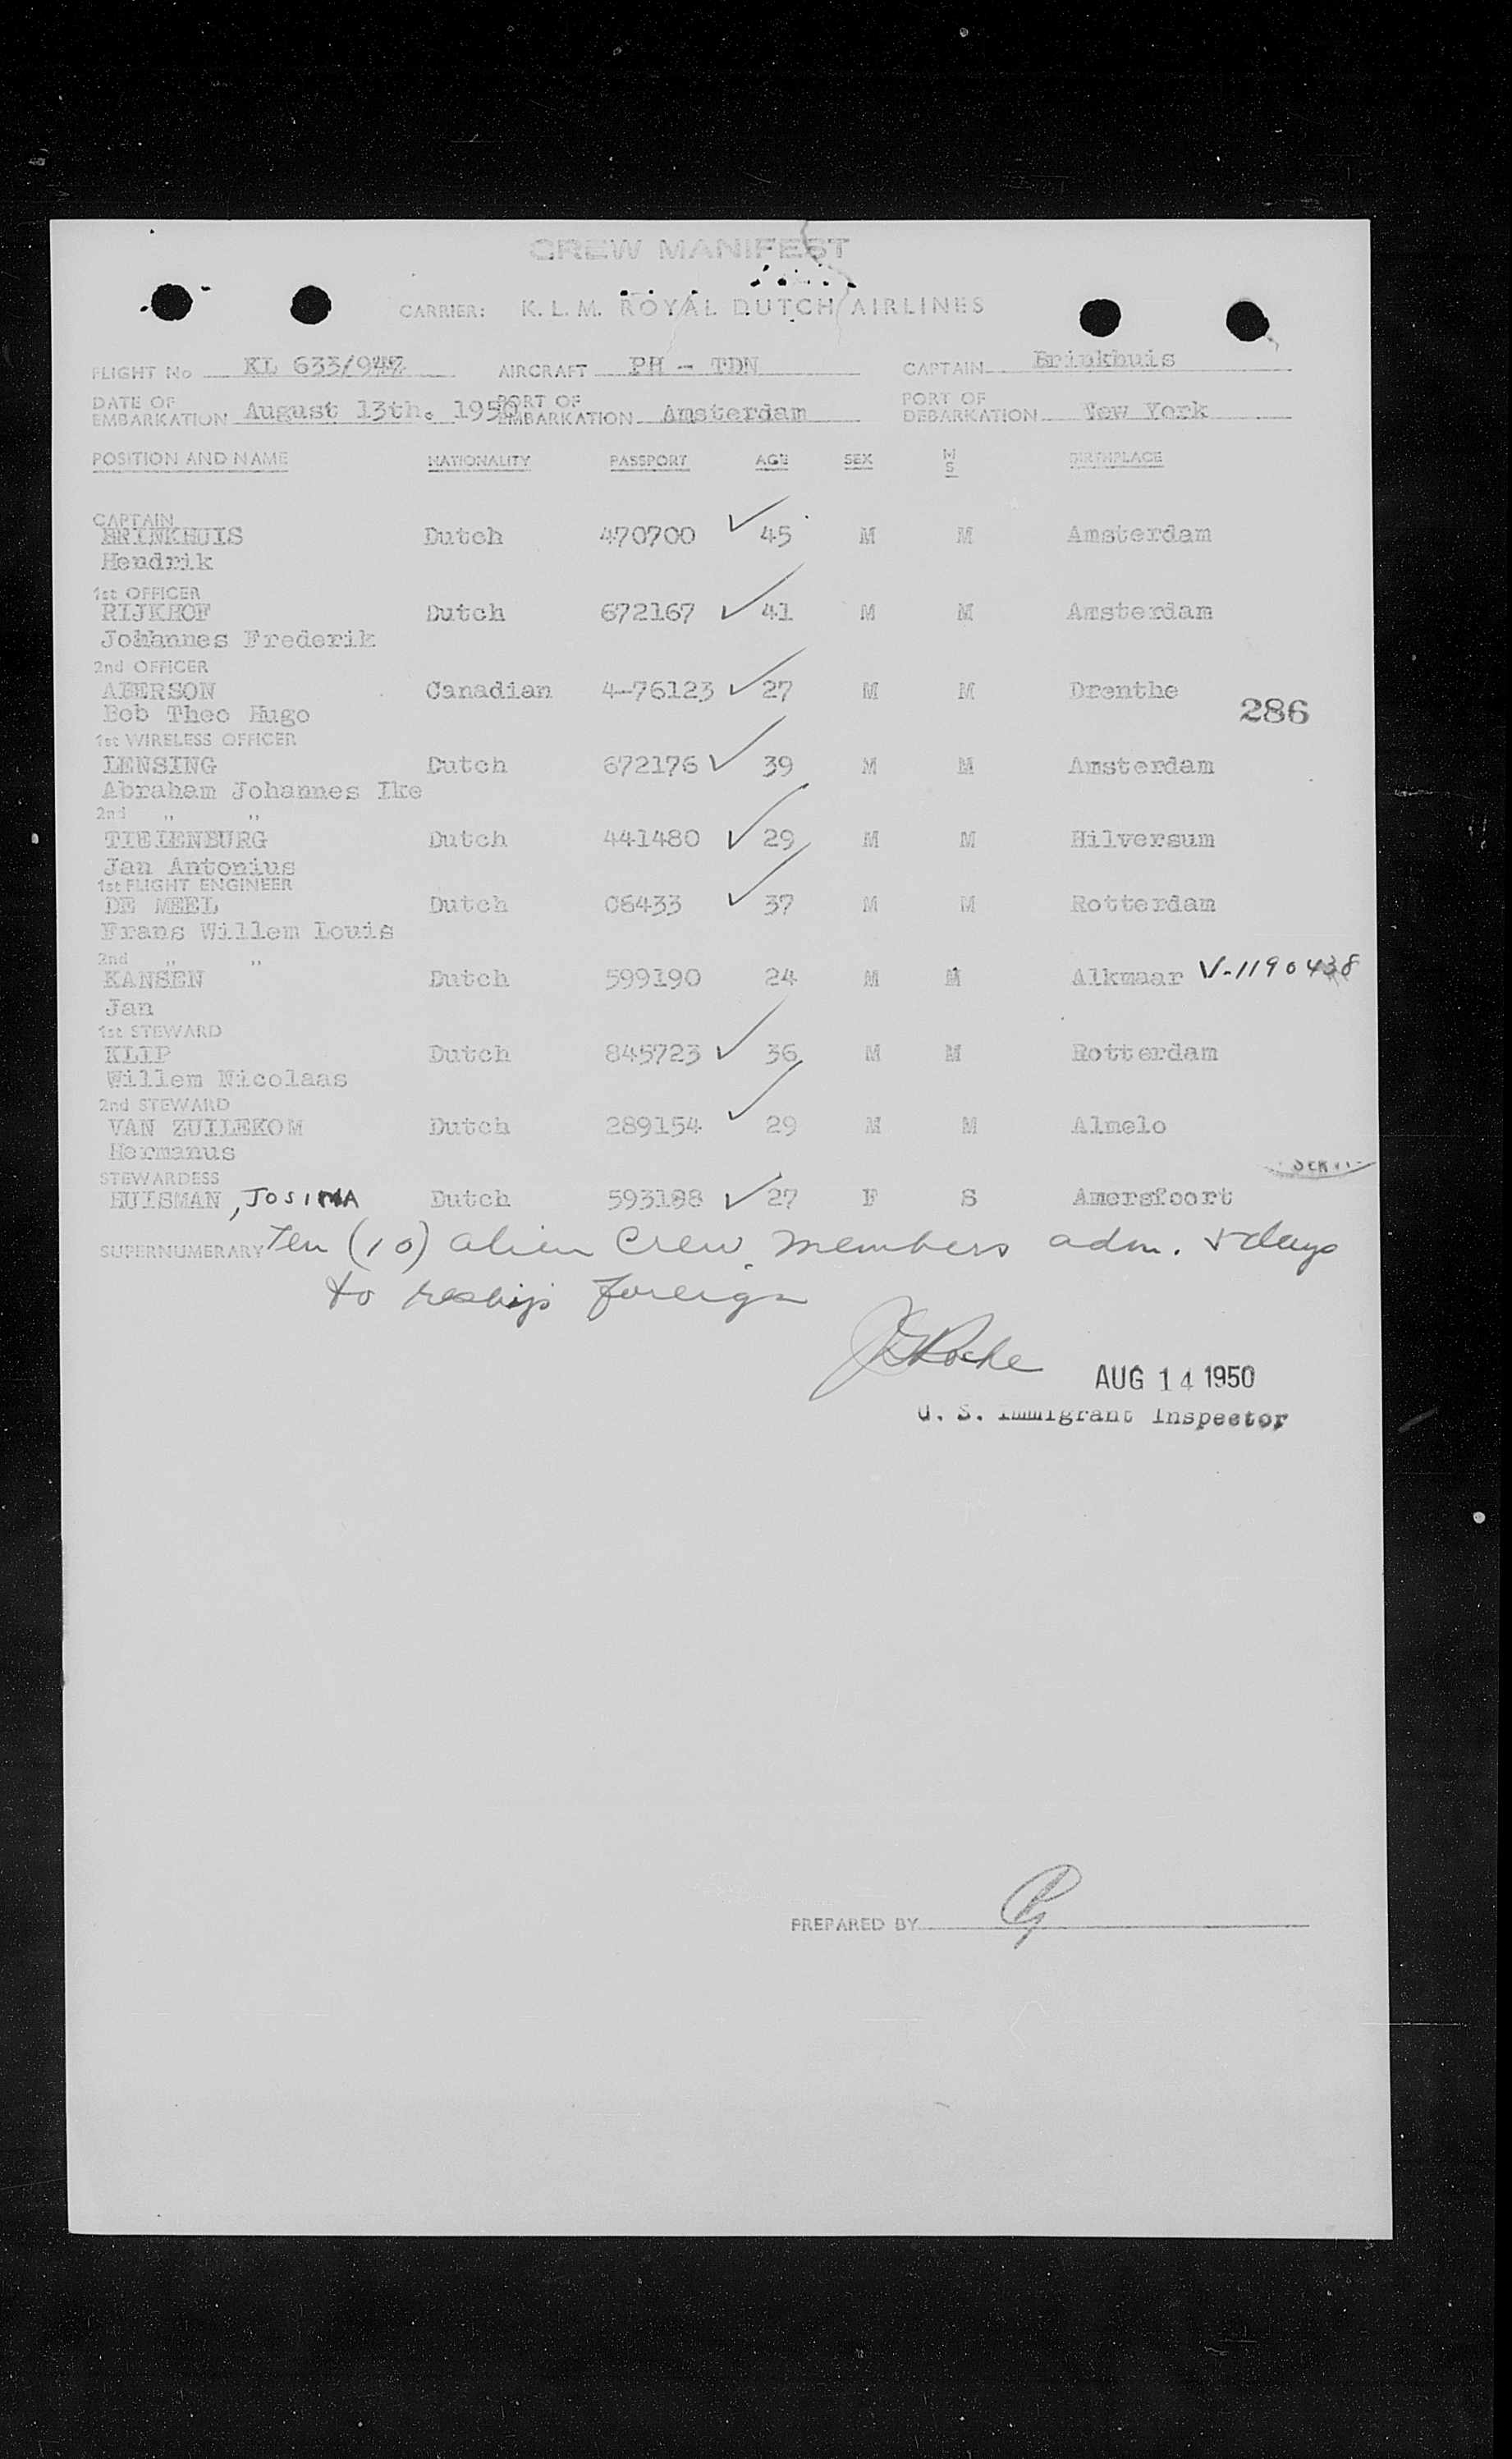 CREW MANIFEST
CARRIER: K. L. M. ROYAL DUTCH AIRLINES
FLIGHT No KL 633/947 AIRCRAFT PH - TDN CAPTAIN Brinkhuis
DATE OF EMBARKATION August 13th. 1950 PORT OF EMBARKATION Amsterdam PORT OF DEBARKATION New York
POSITION AND NAME NATIONALITY PASSPORT AGE SEX M S BIRTHPLACE
CAPTAIN
BRINKHUIS Dutch 470700 ✓ 45 M M Amsterdam
Hendrik
1st OFFICER
RIJKHOF Dutch 672167 ✓ 41 M M Amsterdam
Johannes Frederik
2nd OFFICER
ABERSON Canadian 4-76123 ✓ 27 M M Drenthe
286
Bob Theo Hugo
1st WIRELESS OFFICER
LENSING Dutch 672176 ✓ 39 M M Amsterdam
Abraham Johannes Ike
2nd " "
TIELENBURG Dutch 441480 ✓ 29 M M Hilversum
Jan Antonius
1st FLIGHT ENGINEER
DE MEEL Dutch 06433 ✓ 37 M M Rotterdam
Frans Willem Louis
2nd " "
KANSEN Dutch 599190 24 M M Alkmaar V-1190438
Jan
1st STEWARD
KLIP Dutch 845723 ✓ 36 M M Rotterdam
Willem Nicolaas
2nd STEWARD
VAN ZUILEKOM Dutch 289154 ✓ 29 M M Almelo
Hermanus
STEWARDESS
HUISMAN, JOSINA Dutch 593188 ✓ 27 F S Amersfoort
SUPERNUMERARY Ten (10) alien Crew members adm. 5 days
to reship foreign
JGRoche AUG 14 1950
U. S. Immigrant Inspector
PREPARED BY